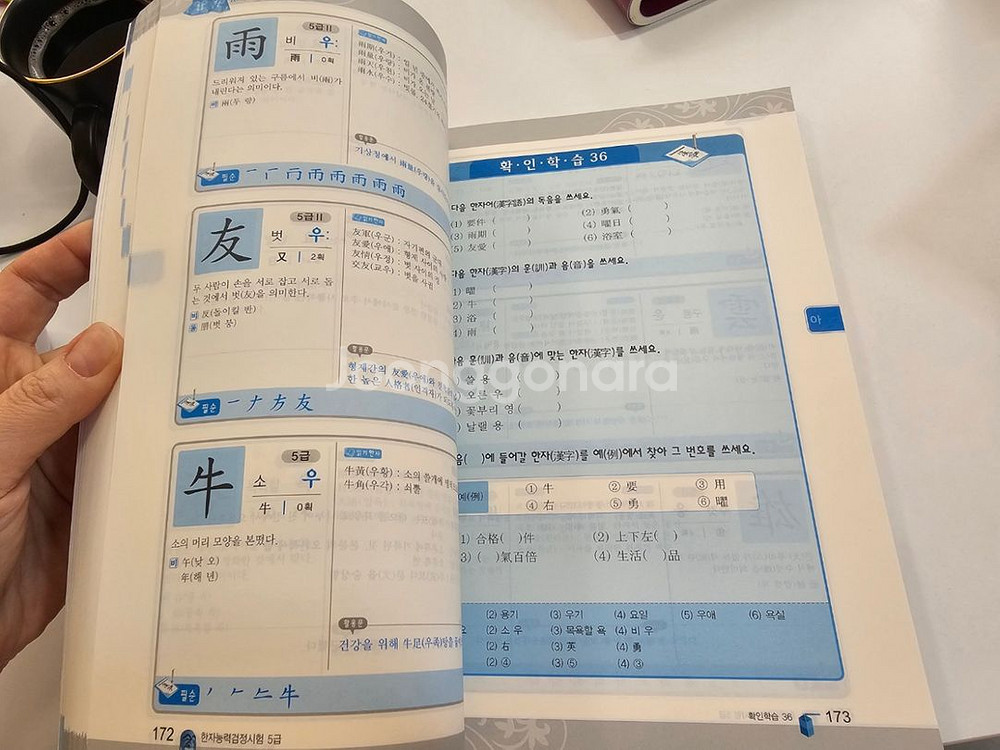 雨
5급Ⅱ
비 우:
雨 | 0획
드리워져 있는 구름에서 비(雨)가
내린다는 의미이다.
비 兩(두 량)
읽기한자
雨期(우기) :
雨量(우량) :
雨天(우천) :
雨水(우수) :
활용문
기상청에서 雨量(우량)을
필순
友
5급Ⅱ
벗 우:
又 | 2획
두 사람이 손을 서로 잡고 서로 돕
는 것에서 벗(友)을 의미한다.
비 反(돌이킬 반)
동 朋(벗 붕)
읽기한자
友軍(우군) : 자기편의 군대
友愛(우애) : 형제 사이의
友情(우정) : 벗 사이의 정
交友(교우) : 벗을 사귐
활용문
형제간의 友愛(우애)와
한 높은 人格者(인격자)가
필순 一 ナ 方 友
牛
5급
소 우
牛 | 0획
소의 머리 모양을 본떴다.
비 午(낮 오)
年(해 년)
읽기한자
牛黃(우황) : 소의 쓸개에
牛角(우각) : 쇠뿔
활용문
건강을 위해 牛足(우족)탕을
필순
172 한자능력검정시험 5급
확·인·학·습 36
다음 한자어(漢字語)의 독음을 쓰세요.
(1) 要件 ( ) (2) 勇氣 ( )
(3) 雨期 ( ) (4) 曜日 ( )
(5) 友愛 ( ) (6) 浴室 ( )
다음 한자(漢字)의 훈(訓)과 음(音)을 쓰세요.
1) 曜 ( )
2) 牛 ( )
3) 浴 ( )
4) 雨 ( )
다음 훈(訓)과 음(音)에 맞는 한자(漢字)를 쓰세요.
쓸 용 ( )
오른 우 ( )
꽃부리 영 ( )
날랠 용 ( )
음( )에 들어갈 한자(漢字)를 예(例)에서 찾아 그 번호를 쓰세요.
예(例) ① 牛 ② 要 ③ 用
④ 右 ⑤ 勇 ⑥ 曜
1) 合格( )件 (2) 上下左( )
3) ( )氣百倍 (4) 生活( )品
(2) 용기 (3) 우기 (4) 요일 (5) 우애 (6) 욕실
(2) 소 우 (3) 목욕할 욕 (4) 비 우
(2) 右 (3) 英 (4) 勇
(2) ④ (3) ⑤ (4) ③
아
확인학습 36 173